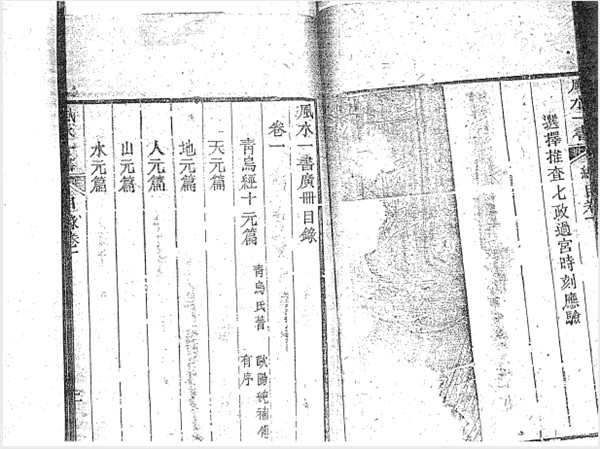 風水一書
選擇推查七政過宮時刻應驗
風水一書廣冊目錄
卷一
青烏經十元篇 青烏氏著 歐陽純補傳 有序
天元篇
地元篇
人元篇
山元篇
水元篇
目錄卷一